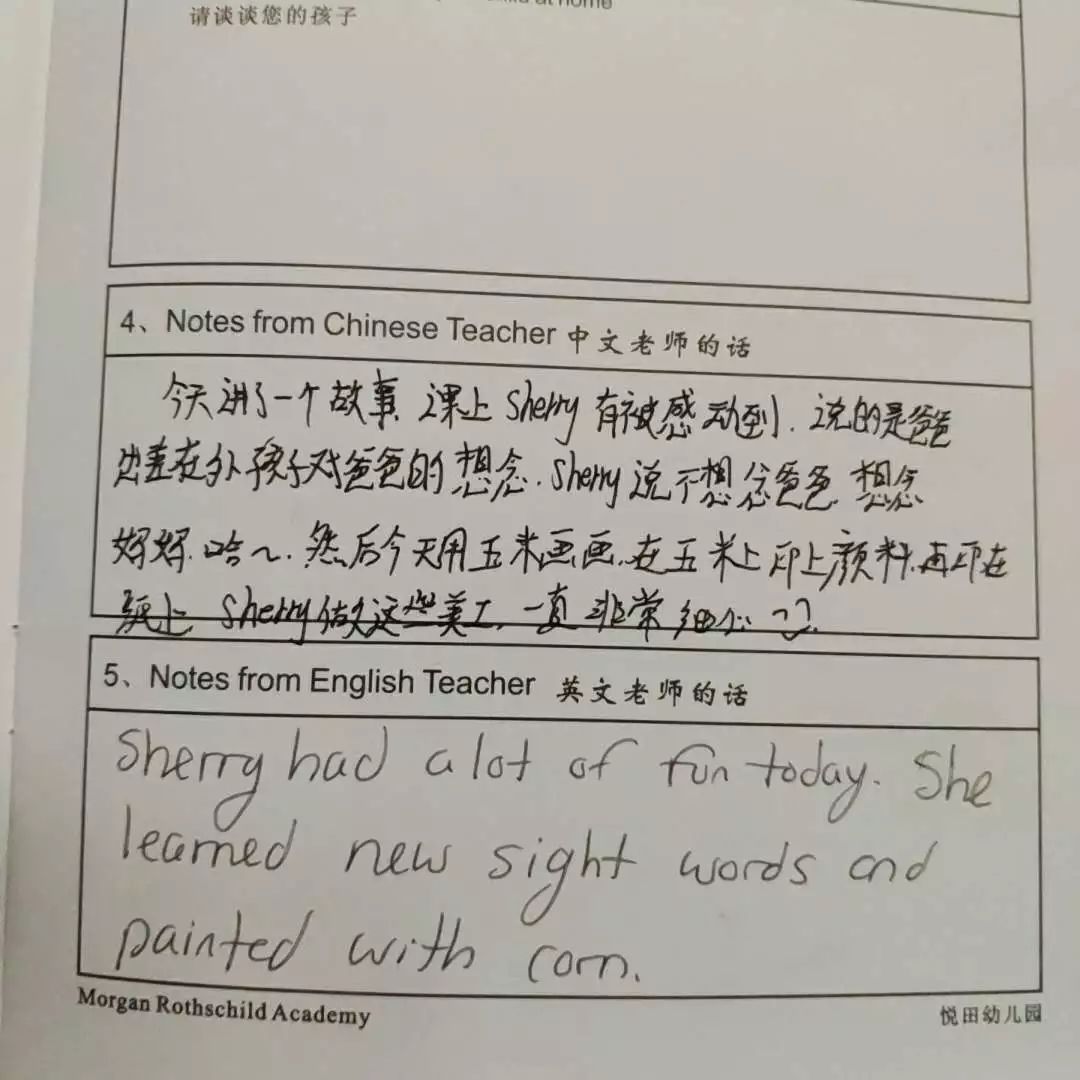 at home
请谈谈您的孩子
4、Notes from Chinese Teacher 中文老师的话
今天讲了一个故事，课上Sherry有被感动到．说的是爸爸
出差在外孩子对爸爸的想念．Sherry说不想念爸爸，想念
妈妈．哈～．然后今天用玉米画画，在玉米上印上颜料，再印在
纸上，Sherry做这些美工，一直非常细心
5、Notes from English Teacher 英文老师的话
Sherry had a lot of fun today. She
learned new sight words and
painted with corn.
Morgan Rothschild Academy 悦田幼儿园